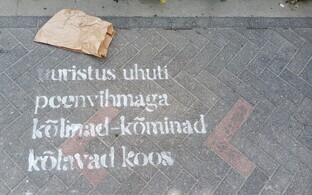 uuristus uhuti
peenvihmaga
kõlinad-kõminad
kõlavad koos